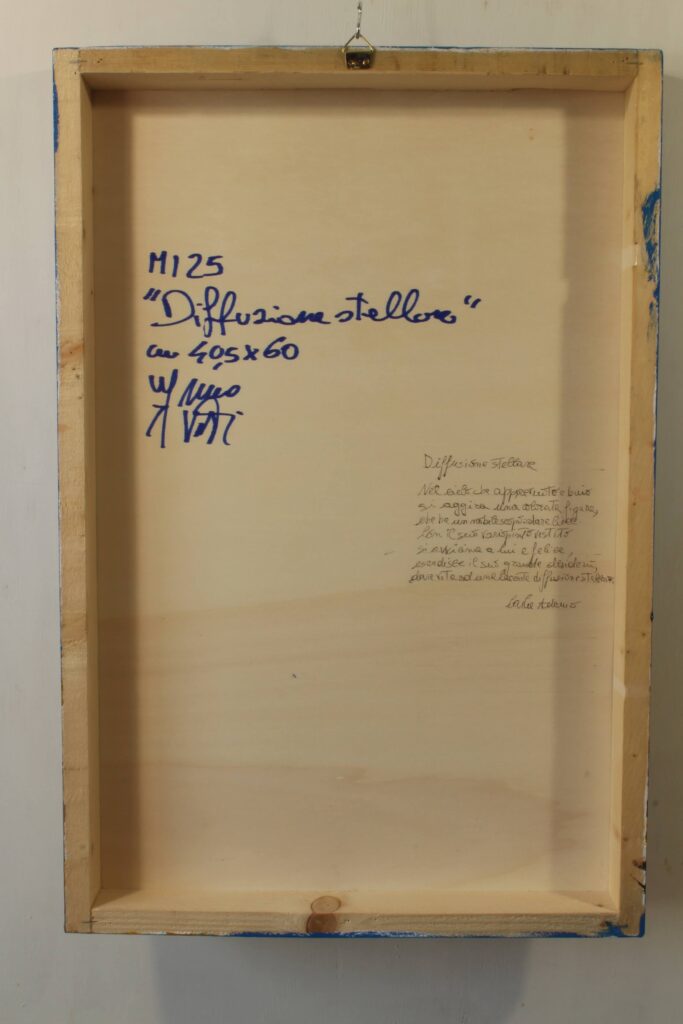 M125
"Diffusione stellare"
cm 40,5x60
Diffusione stellare
Nel cielo che appare muto e buio
si aggira una colorata figura,
che ha un nobile scopo: dare luce.
Con il suo variopinto vestito
si avvicina a lui e felice,
esaudisce il suo grande desiderio,
dare vita ad una diffusione stellare